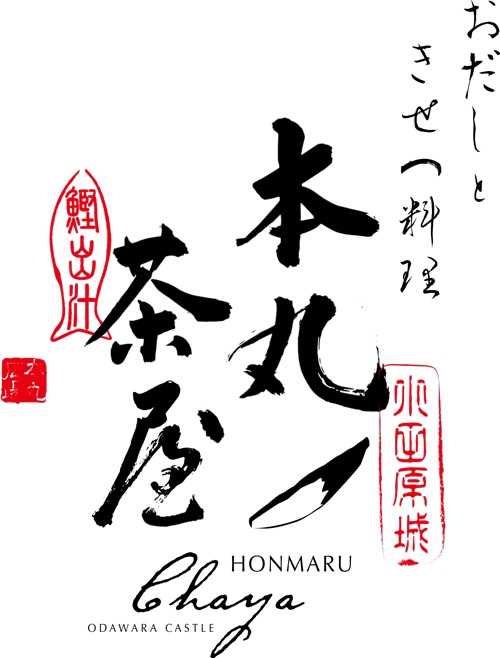 おだしと
きせつ料理
本丸
茶屋
鰹出汁
小田原城
HONMARU
Chaya
ODAWARA CASTLE